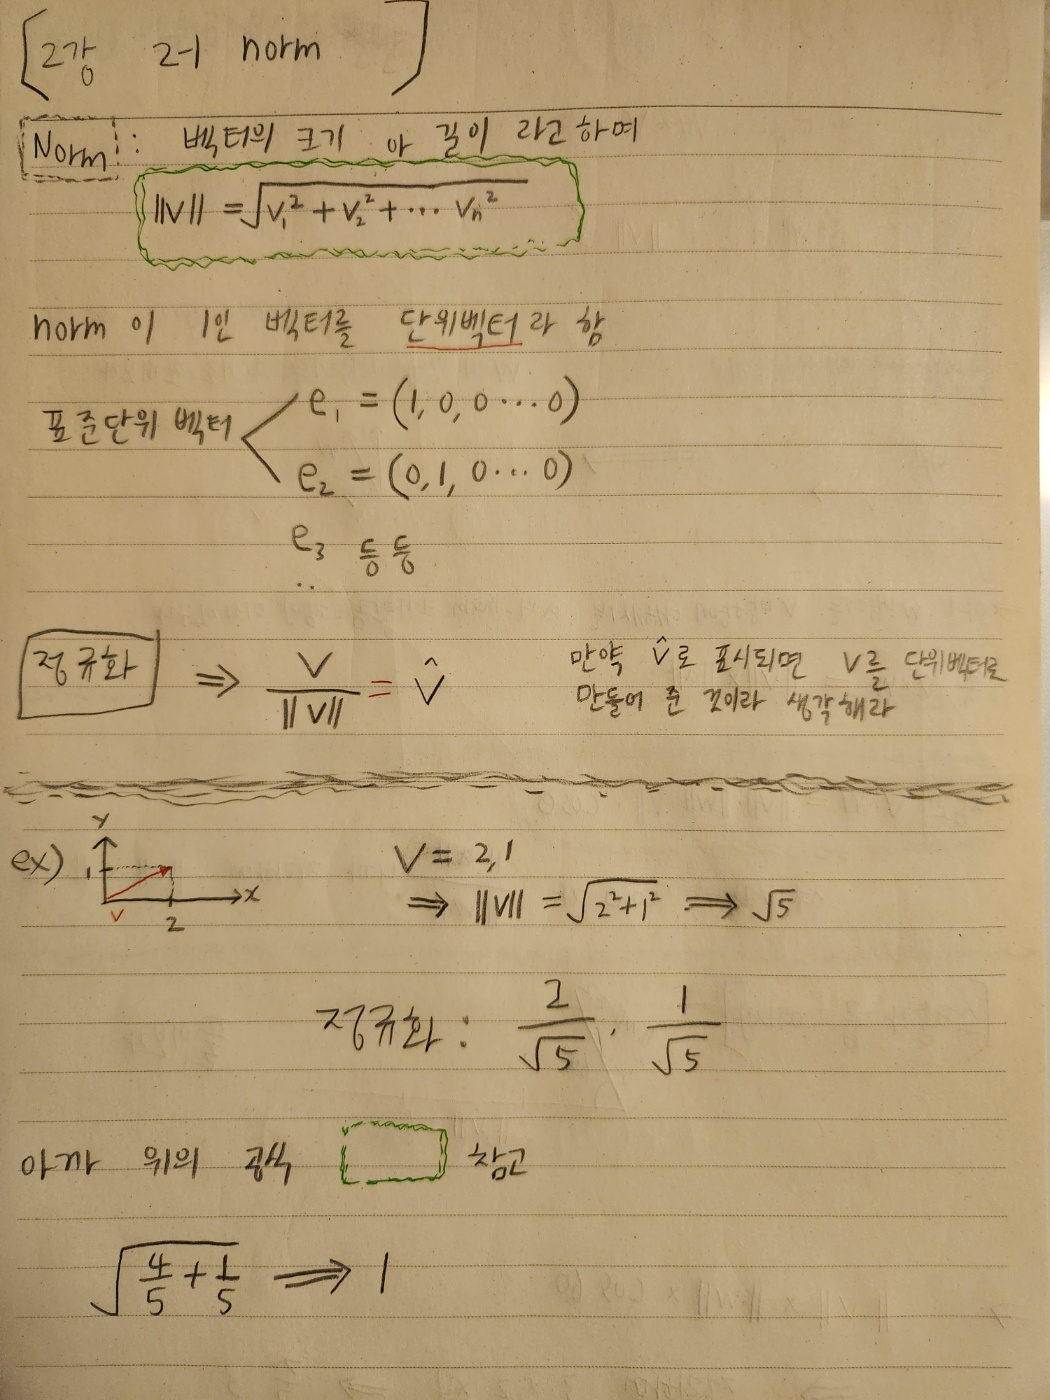 [2강 2-1 norm]
Norm : 벡터의 크기 아 길이 라고하며
||V|| = √(V₁² + V₂² + ··· Vₙ²)
norm 이 1인 벡터를 단위벡터라 함
표준단위 벡터
e₁ = (1, 0, 0 ··· 0)
e₂ = (0, 1, 0 ··· 0)
e₃ 등등
··
정규화 ⇒ V/||V|| = V̂
만약 V̂로 표시되면 V를 단위벡터로
만들어 준 것이라 생각해라
ex) y 1 V 2 x
V = 2, 1
⇒ ||V|| = √(2²+1²) ⇒ √5
정규화 : 2/√5 , 1/√5
아까 위의 공식 참고
√(4/5 + 1/5) ⇒ 1